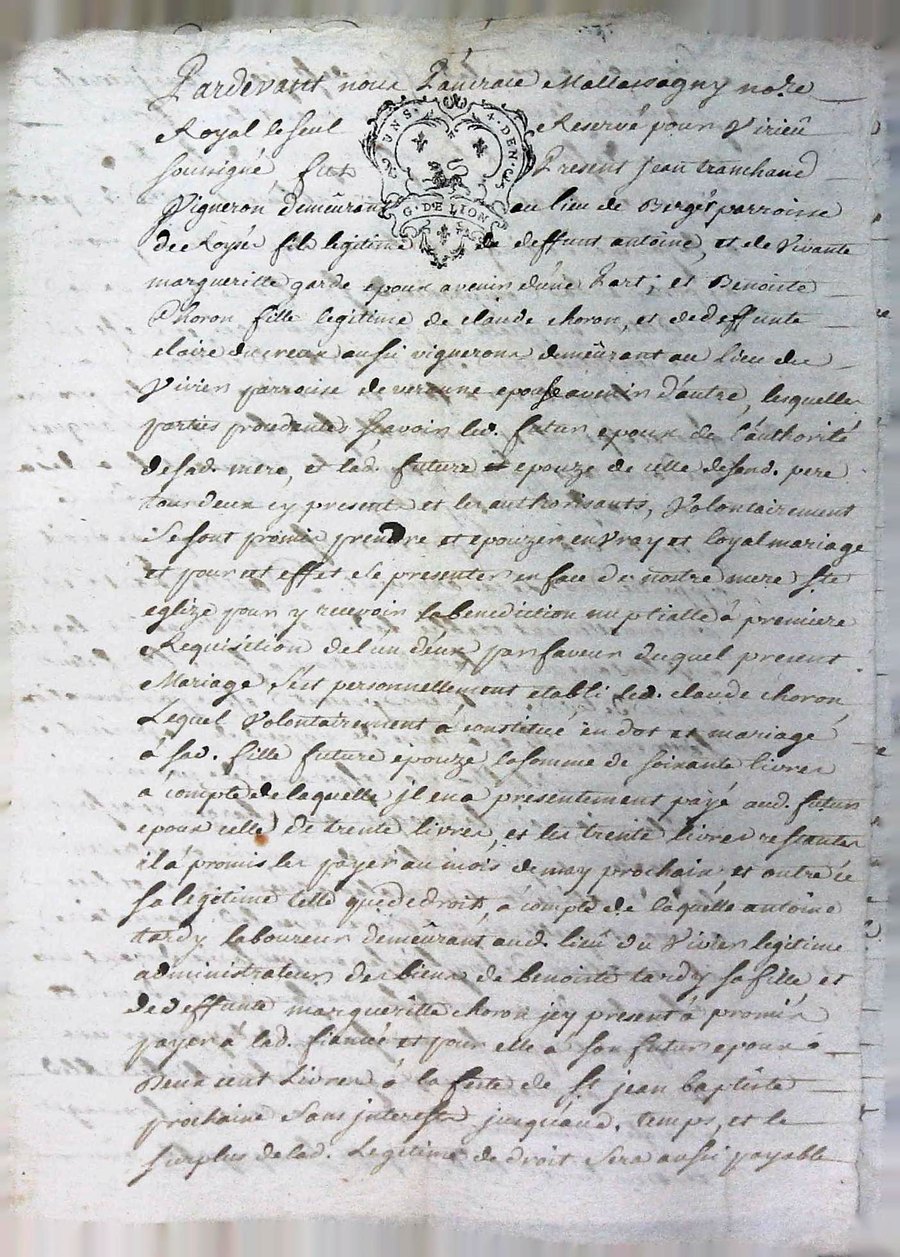 Pardevant nous Mallassagny no.re
Royal le seul Reservé pour Virieu
UNS. 4. DEN.
souvigné fut Present jean tranchand
Vigneron demeurant au lieu de Berger parroisse
G. DE LION
de Royer fils legitime de deffunt antoine, et de vivante
margueritte garde epoux avenir d'une Part; et Benoite
Choron fille legitime de claude choron, et de deffunte
claire ducreux aussi vignerons demeûrant au Lieu du
Vivier parroisse de veranne epouse avenir d'autre, lesquelles
parties procedantes scavoir led. futur epoux de l'authorité
de sad. mere, et lad. future epouze de celle de sond. pere
tous deux cy present et les authorisants, Volontairement
se sont promis prendre et epouzer en vray et loyal mariage
et pour cet effet se presenter en face de nostre mere ste
eglize pour y recevoir la benediction nuptialle à premiere
Requisition de l'un d'eux par faveur duquel present
Mariage s'est personnellement etabli led. claude choron
Lequel Volontairement à constitué en dot et mariage
à sad. fille future epouze la somme de soixante livres
a compte de laquelle jl en a presentement payé aud. futur
epoux celle de trente livres, et les trente livres restantes
il à promis les payer au mois de may prochain et outre ce
sa legitime telle que de droit, à compte de laquelle antoine
tardy laboureur demeûrant aud. lieu du Vivier legitime
administrateur des biens de benoite tardy sa fille et
de deffunte margueritte choron jcy present à promis
payer à lad. fiancée et pour elle a son futur epoux
Deux cent Livres à la feste de st jean baptiste
prochaine sans interests jusqu'aud. temps, et le
surplus de lad. Legitime de droit sera aussi payable